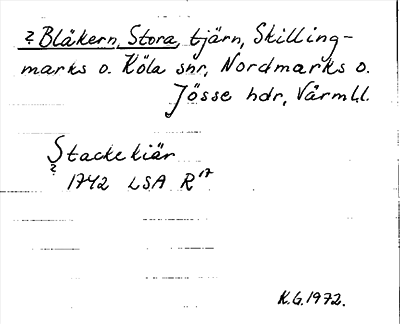 ? Blåkern, Stora, tjärn, Skilling-
marks o. Köla snr, Nordmarks o.
Jösse hdr, Värml.
Stackekiär
?
1742 LSA R17
K.G.1972.